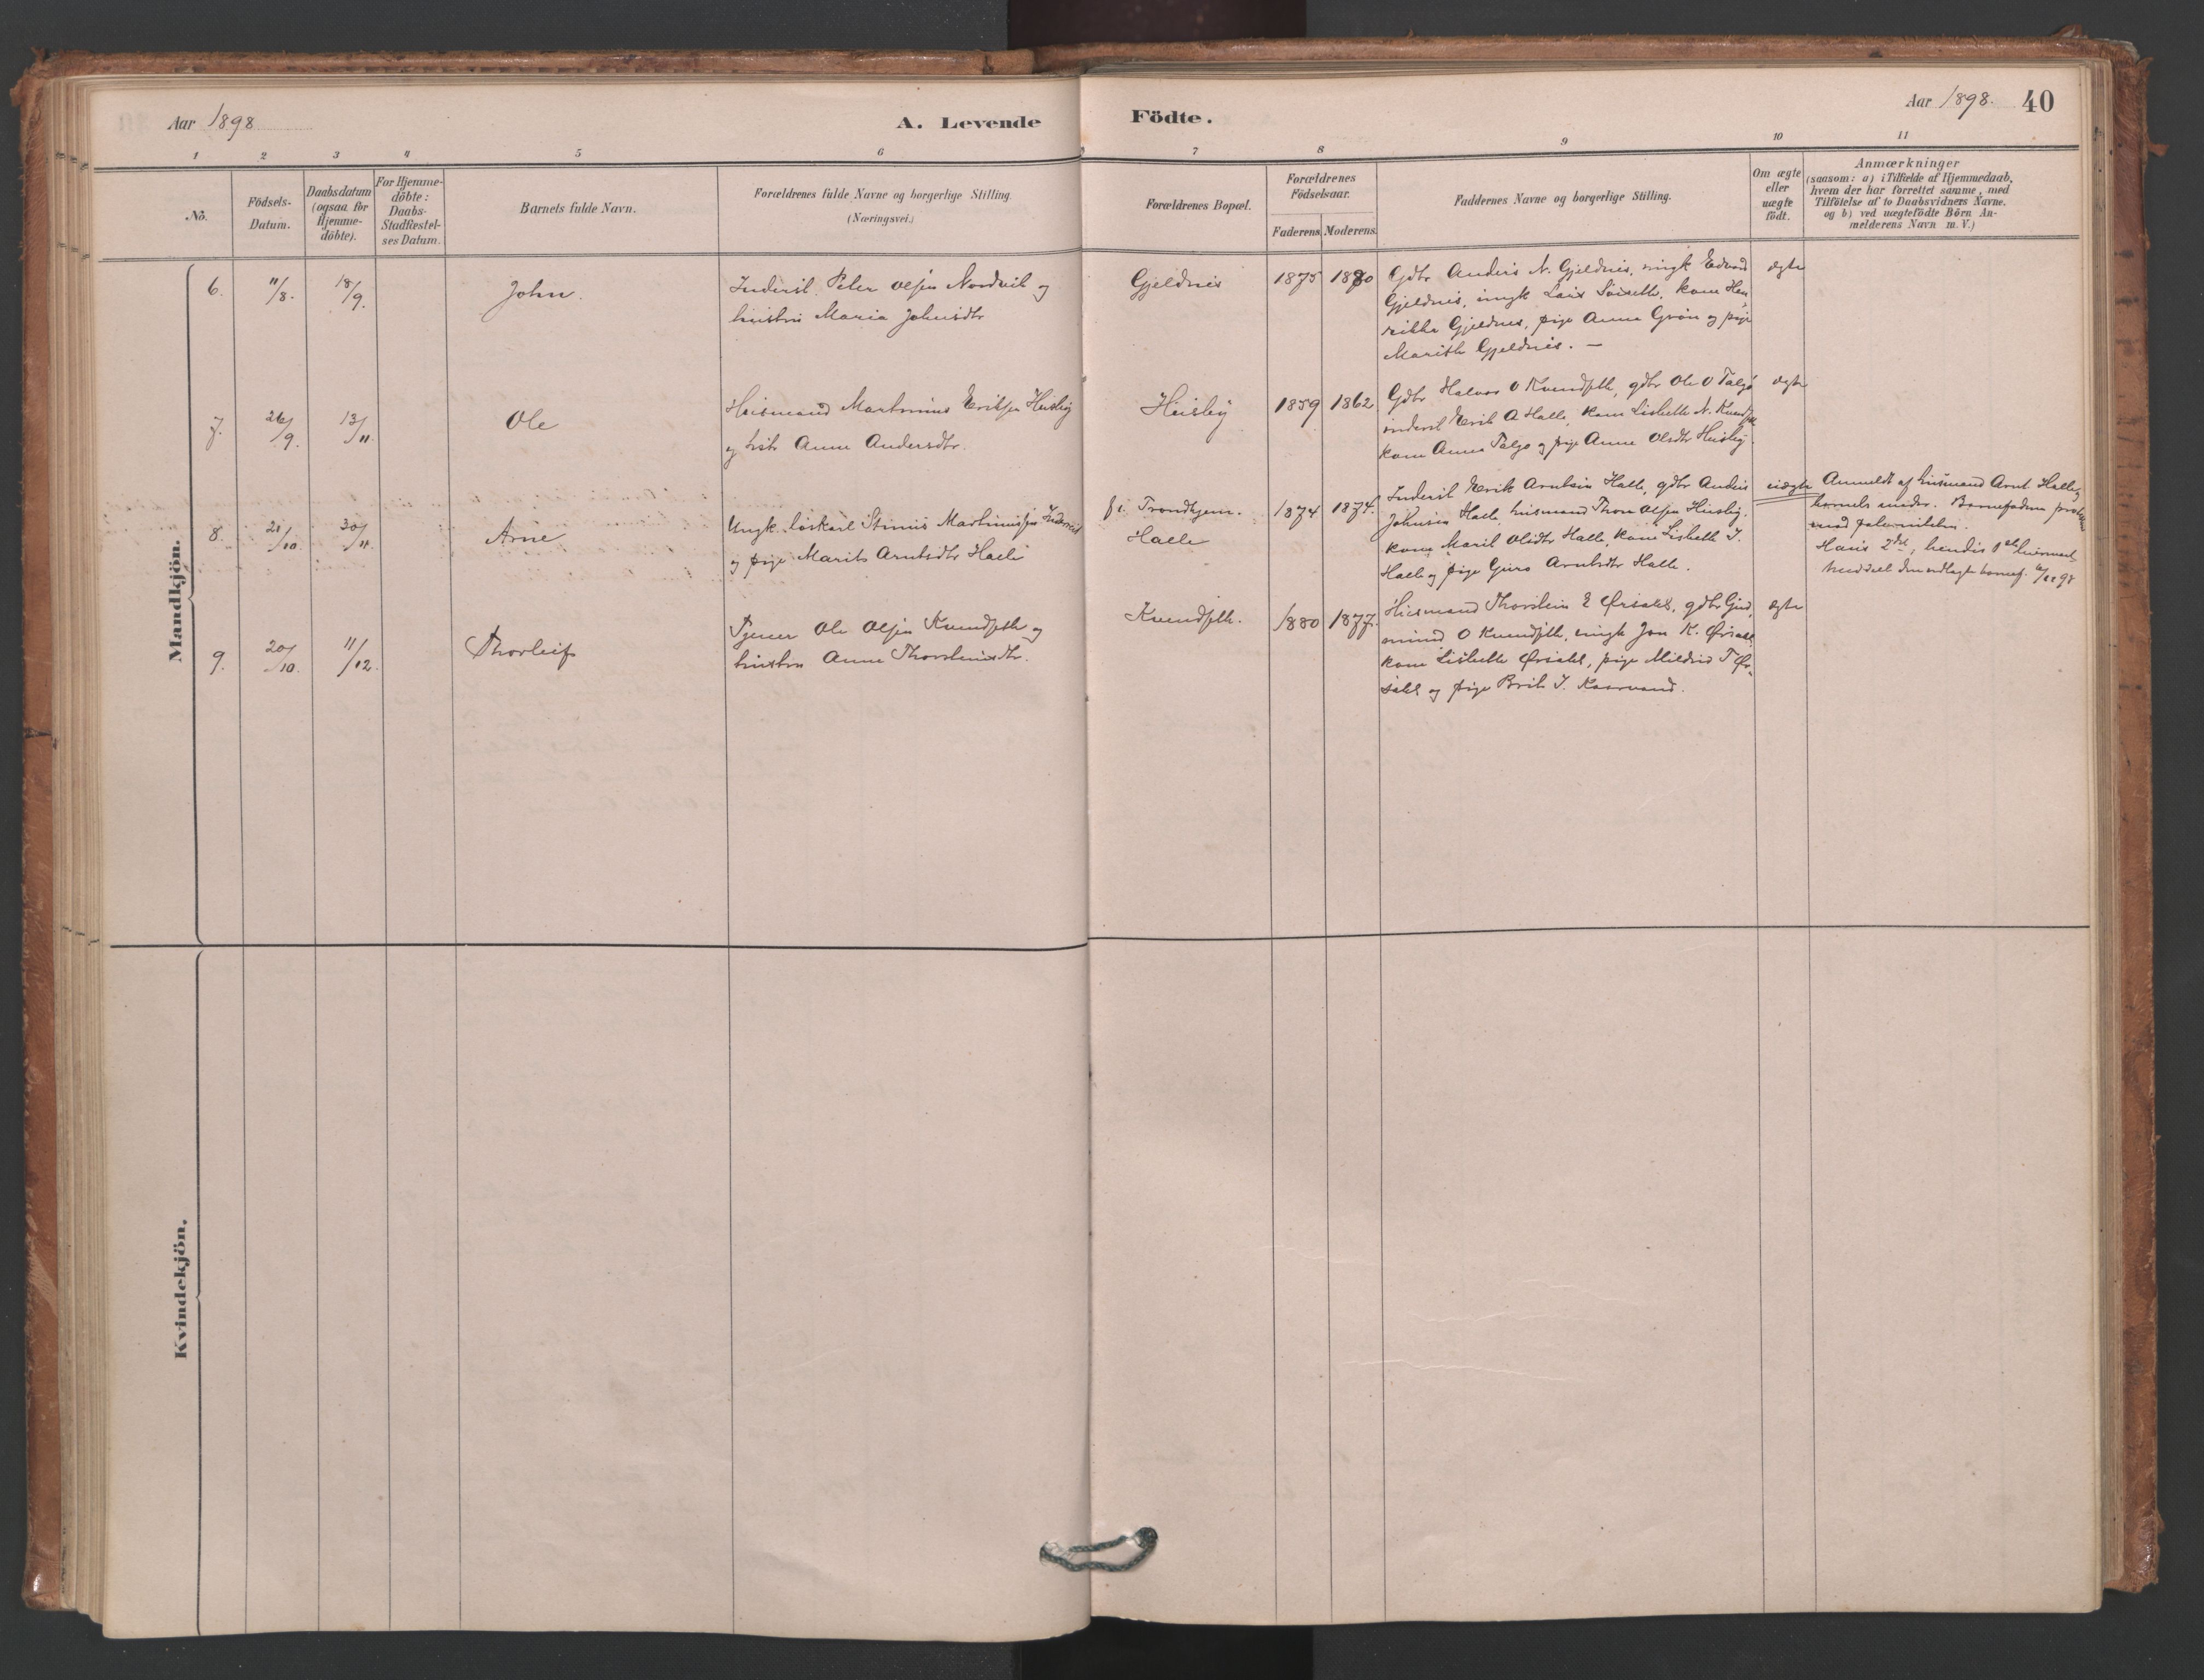 Aar 1898
A. Levende Födte.
Aar 1898. 40
1 2 3 4 5 6 7 8 9 10 11
No.
Födsels-
Datum.
Daabsdatum
(ogsaa for
Hjemme-
döbte).
For Hjemme-
döbte:
Daabs-
Stadfæstel-
ses Datum.
Barnets fulde Navn.
Forældrenes fulde Navne og borgerlige Stilling.
(Næringsvei.)
Forældrenes Bopæl.
Forældrenes
Födselsaar.
Faderens. Moderens.
Faddernes Navne og borgerlige Stilling.
Om ægte
eller
uægte
födt.
Anmærkninger
(saasom: a) i Tilfælde af Hjemmedaab,
hvem der har forrettet samme, med
Tilföielse af to Daabsvidners Navne,
og b) ved uægtefödte Börn An-
melderens Navn m. V.)
Mandkjön.
6. 11/8. 18/9. John.
Inderst Peter Olsen Nordvik og
hustru Maria Johnsdtr
Gjeldnes 1875 1880
Gdbr Anders N. Gjeldnes, ungk Edvard
Gjeldnes, ungk Lars kone Hen
rikke Gjeldnes, pige Anna Grön og pige
Marith Gjeldnes. —
ægte
7. 26/9. 13/11. Ole
Husmand Martinus Eriksen Husby
og hstr Anne Andersdtr.
Husby 1859 1862
Gdbr Halvor O Kvendseth, gdbr Ole O Talgö
inderst Erik A Halle, kone Lisbeth N.
kone Anne Talgö og pige Anne Olsdtr Husby.
ægte
8. 21/10. 30/11. Arne
Ungk. löskarl Martinussen
og pige Marit Arntsdtr Halle
f. i. Trondhjem. 1874 1874.
Halle
Inderst Erik Arntsen Halle, gdbr Anders
Johnsen Halle, husmand Thore Olsen Husby.
kone Marit Olsdtr Halle, kone Lisbeth J.
Halle og pige Guro Arntsdtr Halle.
uægte
Anmeldt af husmand Arnt Halle,
barnets Barnefaderen
mod paterniteten.
Hans 2det, hendes 1ste
9. 20/10. 11/12. Thorleif
Tjener Ole Olsen Kvendseth og
hustru Anne Thorsteinsdtr.
Kvendseth. 1880 1877.
Husmand Thorstein E Örsahl, gdbr Gud,
mund O Kvendseth, ungk Jon K. Örsahl
kone Lisbeth Örsahl, pige Mildrid T Ör,
sahl og pige Brit J.
ægte
Kvindekjön.